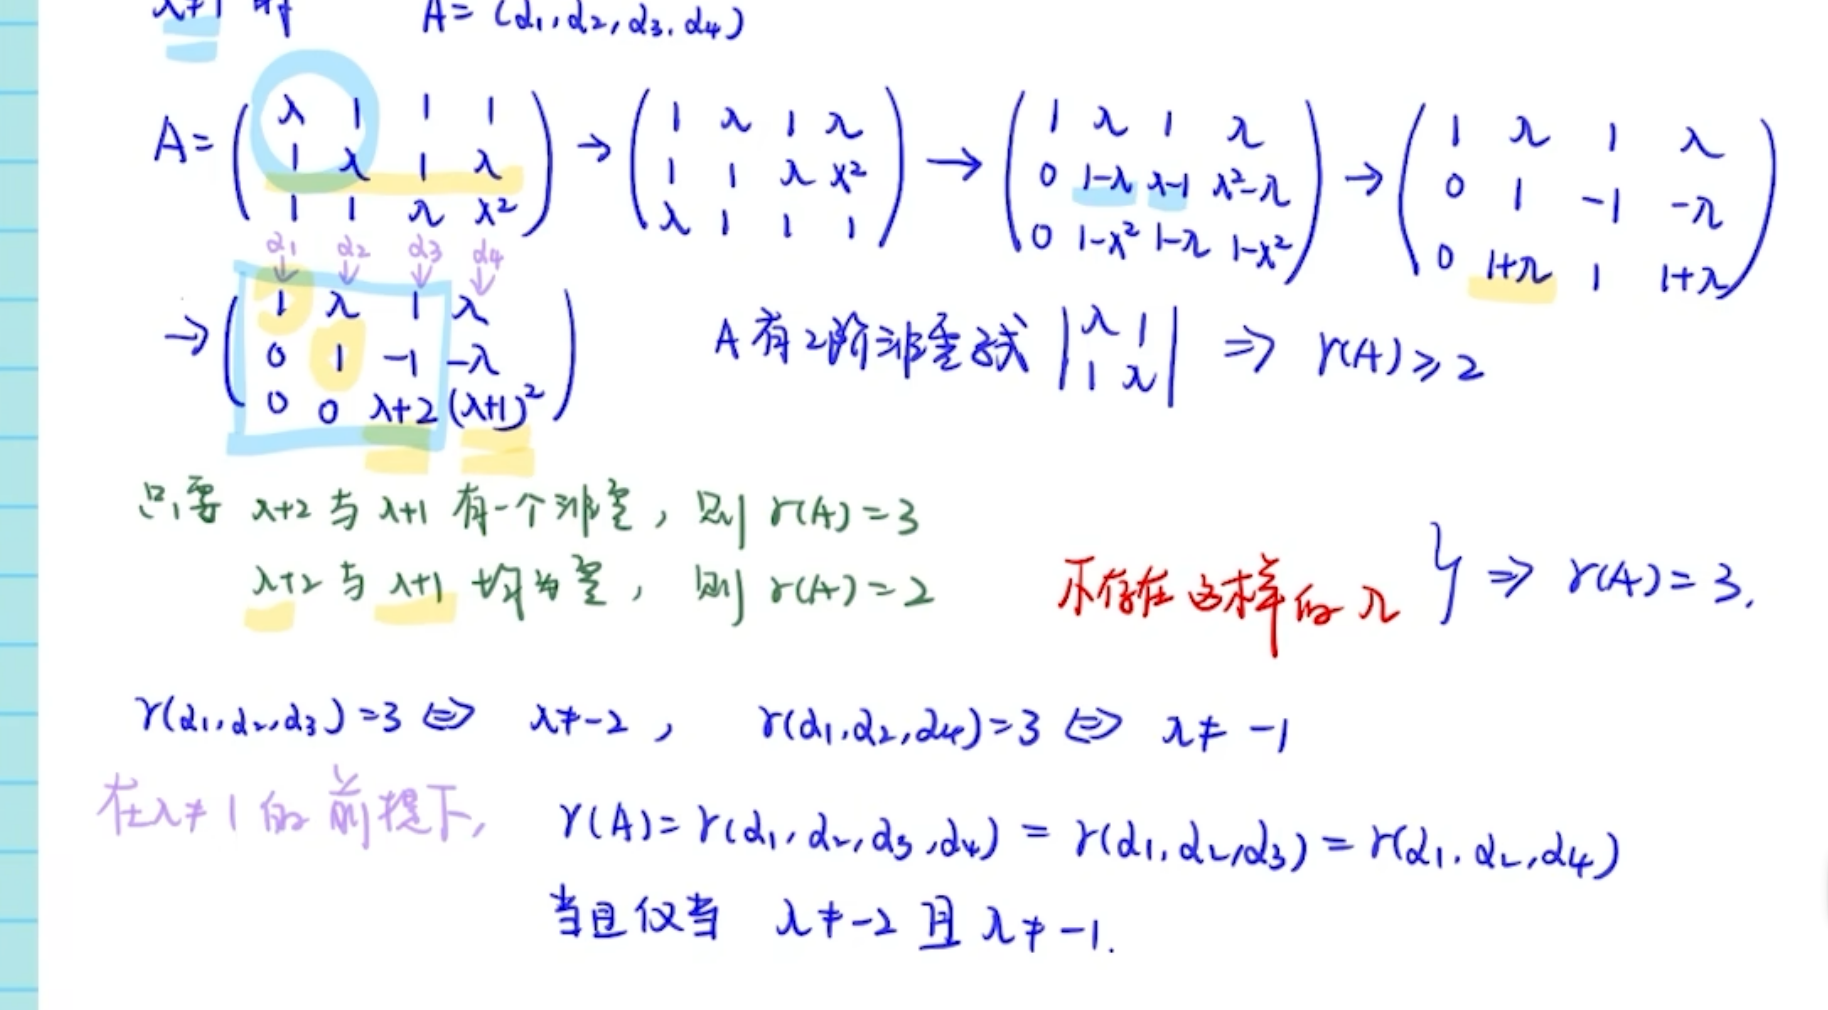 λ≠1 时 A=(α₁,α₂,α₃,α₄)
A= ( λ 1 1 1 ; 1 λ 1 λ ; 1 1 λ λ² ) → ( 1 λ 1 λ ; 1 1 λ λ² ; λ 1 1 1 ) → ( 1 λ 1 λ ; 0 1-λ λ-1 λ²-λ ; 0 1-λ² 1-λ 1-λ² ) → ( 1 λ 1 λ ; 0 1 -1 -λ ; 0 1+λ 1 1+λ )
α₁ α₂ α₃ α₄
↓ ↓ ↓ ↓
→ ( 1 λ 1 λ ; 0 1 -1 -λ ; 0 0 λ+2 (λ+1)² ) A有2阶非零子式 | λ 1 ; 1 λ | ⇒ r(A)≥2
只要 λ+2 与 λ+1 有一个非零, 则 r(A)=3
λ+2 与 λ+1 均为零, 则 r(A)=2 不存在这样的λ } ⇒ r(A)=3.
r(α₁,α₂,α₃)=3 ⇔ λ≠-2, r(α₁,α₂,α₄)=3 ⇔ λ≠-1
在λ≠1的前提下, r(A)=r(α₁,α₂,α₃,α₄)=r(α₁,α₂,α₃)=r(α₁,α₂,α₄)
当且仅当 λ≠-2 且 λ≠-1.